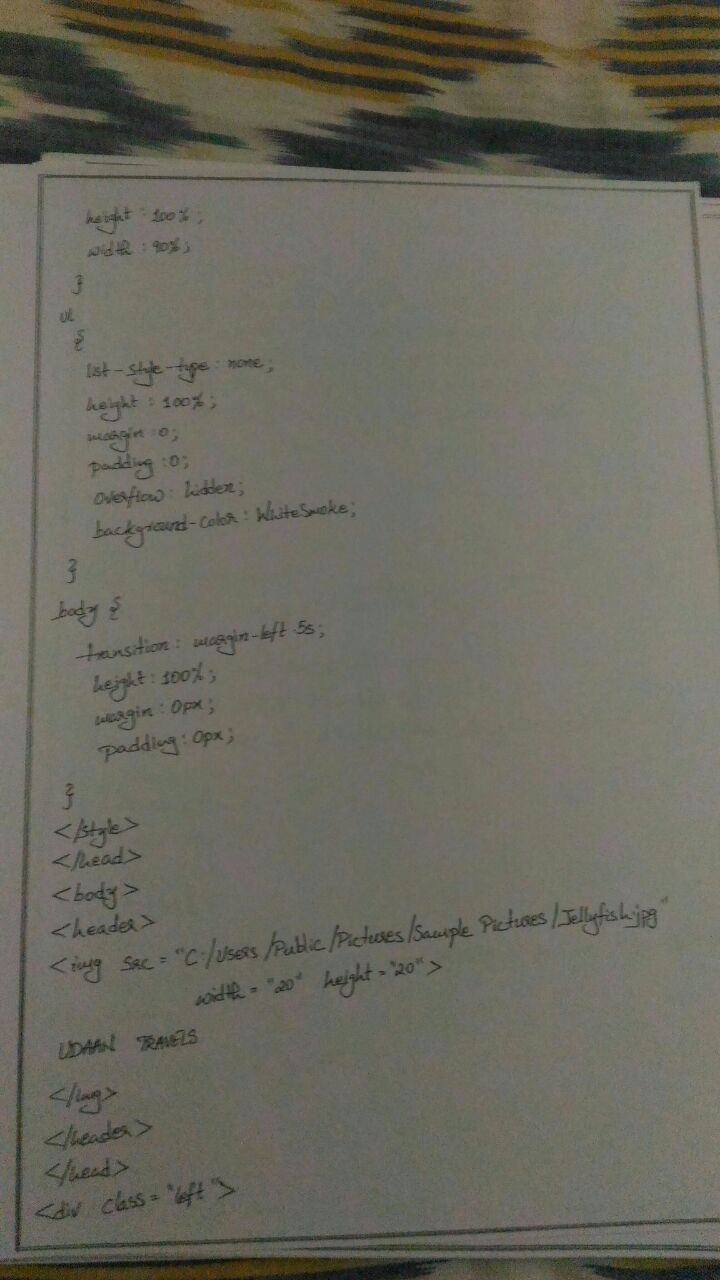 height : 100% ;
width : 90% ;
}
ul
{
list-style-type : none;
height : 100% ;
margin : 0;
padding : 0;
overflow : hidden;
background-color : WhiteSmoke;
}
body {
transition : margin-left .5s ;
height : 100% ;
margin : 0px ;
padding : 0px ;
}
</style>
</head>
<body>
<header>
<img src = "C:/Users/Public/Pictures/Sample Pictures/Jellyfish.jpg"
width = "20" height = "20" >
UDAAN TRAVELS
</img>
</header>
</head>
<div class = "left">